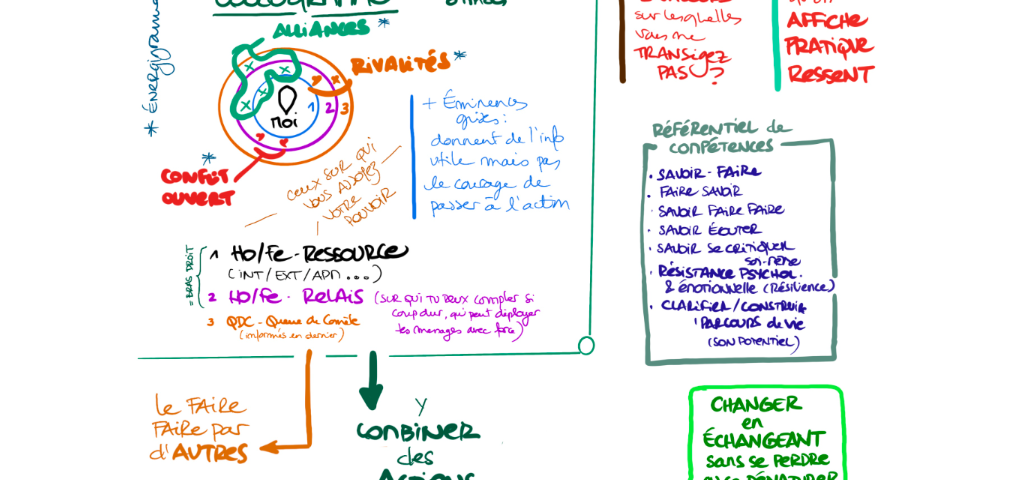 * Énergigramme
ALLIANCES *
RIVALITÉS *
Moi
1 2 3
*
CONFLIT
OUVERT
ceux sur qui
vous asseyez
votre
pouvoir
+ Éminences
grises :
donnent de l'info
utile mais pas
le courage de
passer à l'action
= BRAS DROIT
1 Ho/Fe-RESSOURCE
(INT/EXT/APN ...)
2 Ho/Fe-RELAIS (sur qui tu peux compter si
coup dur, qui peut déployer
tes messages avec force)
3 QDC-Queue de Comète
(informés en dernier)
le FAIRE
FAIRE par
d'AUTRES
y
COMBINER
des
ACTIONS
sur lesquelles
vous ne
TRANSIGEZ
PAS ?
AFFICHE
PRATIQUE
RESSENT
RÉFÉRENTIEL de
COMPÉTENCES
. SAVOIR-FAIRE
. FAIRE SAVOIR
. SAVOIR FAIRE FAIRE
. SAVOIR ÉCOUTER
. SAVOIR SE CRITIQUER
soi-même
. RÉSISTANCE PSYCHOL.
& émotionnelle (Résilience)
. CLARIFIER/CONSTRUIRE
PARCOURS de VIE
(SON POTENTIEL)
CHANGER
en
ÉCHANGEANT
sans se PERDRE
DÉNATURER